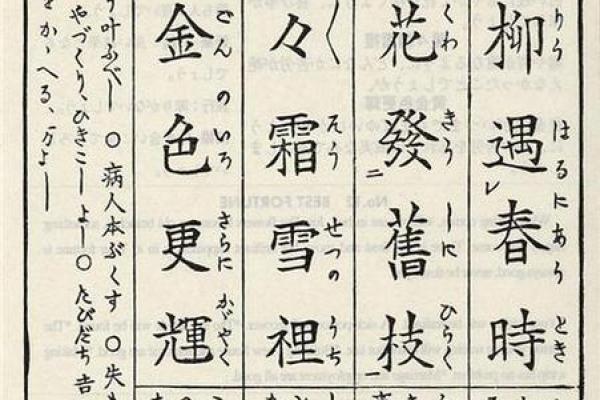 りう はるにあう とき
柳遇レ春時
くわ きう しに ひらく
花發二舊枝一
そう せつの うち
々霜雪裡
きんのいろ さらに かゞやく
金色更輝
叶ふべし 〇病人本ぶくす 〇失も
やづくり、ひきこしよし 〇たびだち吉
をかへる、万よし